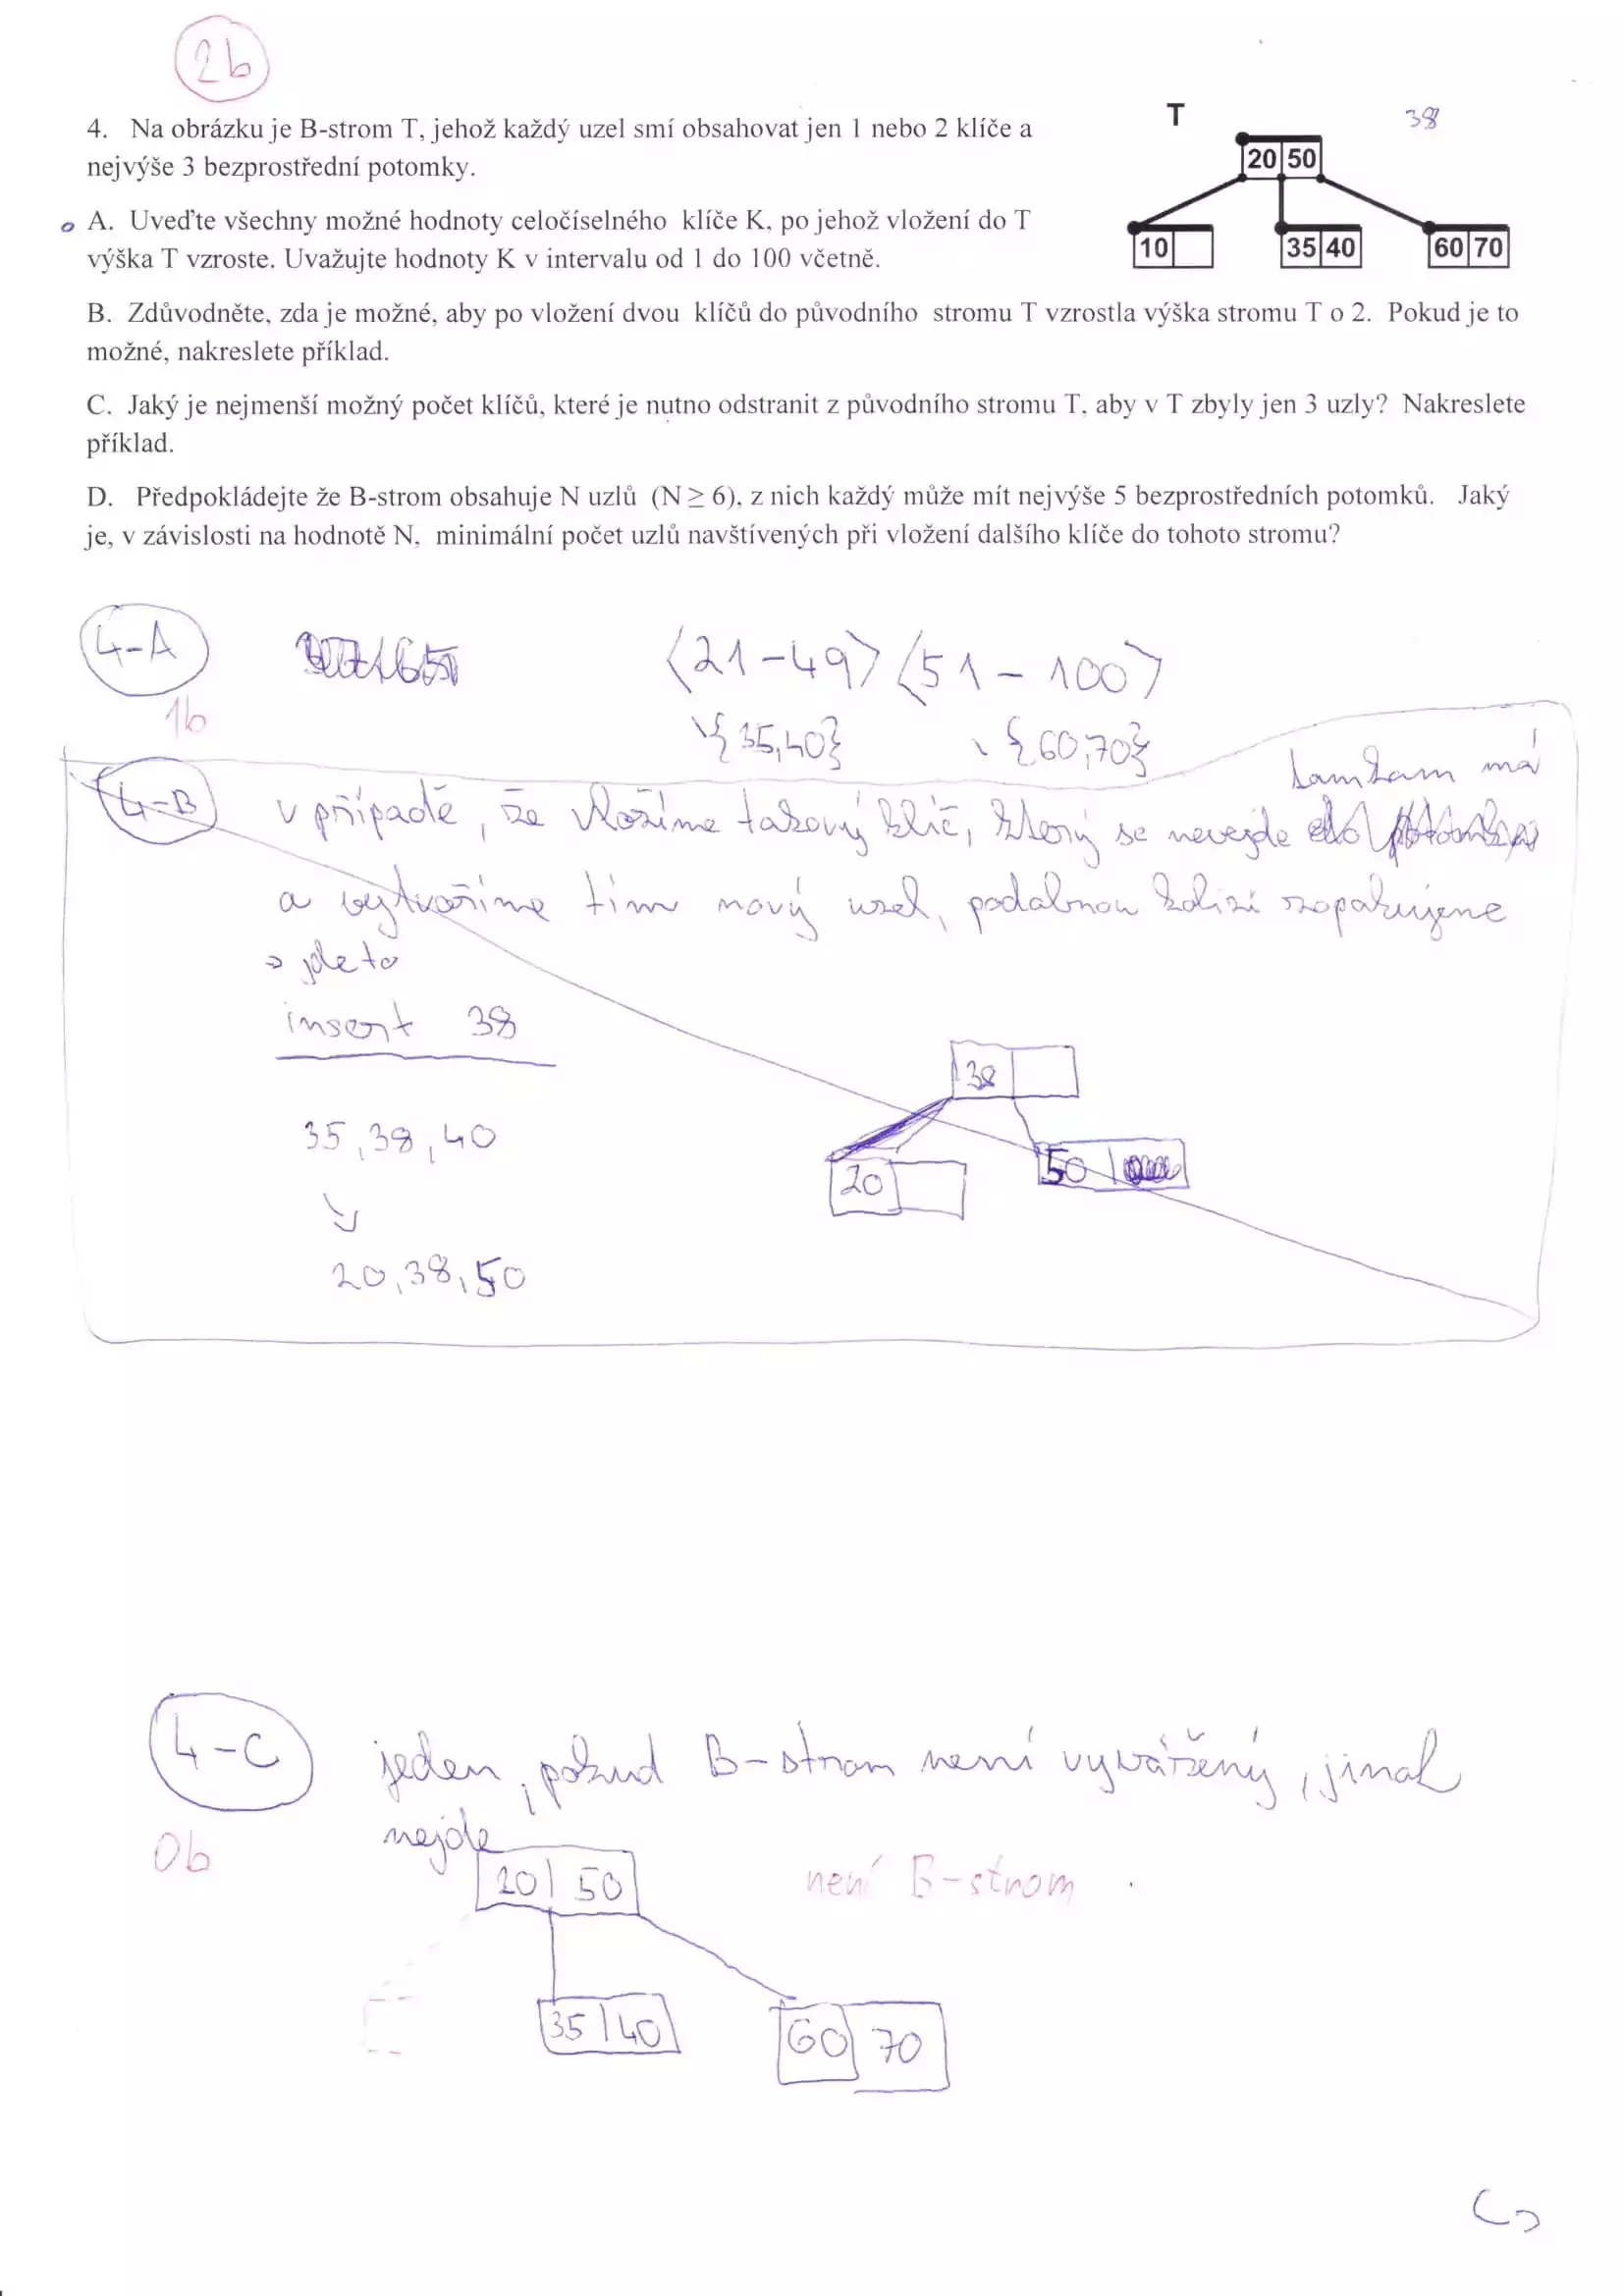 2b
4. Na obrázku je B-strom T, jehož každý uzel smí obsahovat jen 1 nebo 2 klíče a
nejvýše 3 bezprostřední potomky.
T
38
20 50
10
35 40
60 70
A. Uveďte všechny možné hodnoty celočíselného klíče K, po jehož vložení do T
výška T vzroste. Uvažujte hodnoty K v intervalu od 1 do 100 včetně.
B. Zdůvodněte, zda je možné, aby po vložení dvou klíčů do původního stromu T vzrostla výška stromu T o 2. Pokud je to
možné, nakreslete příklad.
C. Jaký je nejmenší možný počet klíčů, které je nutno odstranit z původního stromu T, aby v T zbyly jen 3 uzly? Nakreslete
příklad.
D. Předpokládejte že B-strom obsahuje N uzlů (N ≥ 6), z nich každý může mít nejvýše 5 bezprostředních potomků. Jaký
je, v závislosti na hodnotě N, minimální počet uzlů navštívených při vložení dalšího klíče do tohoto stromu?
4-A
⟨21-49⟩ ⟨51-100⟩
1b
\{35,40} \{60,70}
4-B
kam má
v případě, že vložíme takový klíč, který se nevejde
a vytvoříme tím nový uzel, podobnou kolizi zopakujeme
⇒ jde to
insert 38
38
35, 38, 40
20
50
20, 38, 50
4-C
jeden, pokud B-strom není vyvážený, jinak
nejde
0b
20 50
není B-strom
35 40
60 70